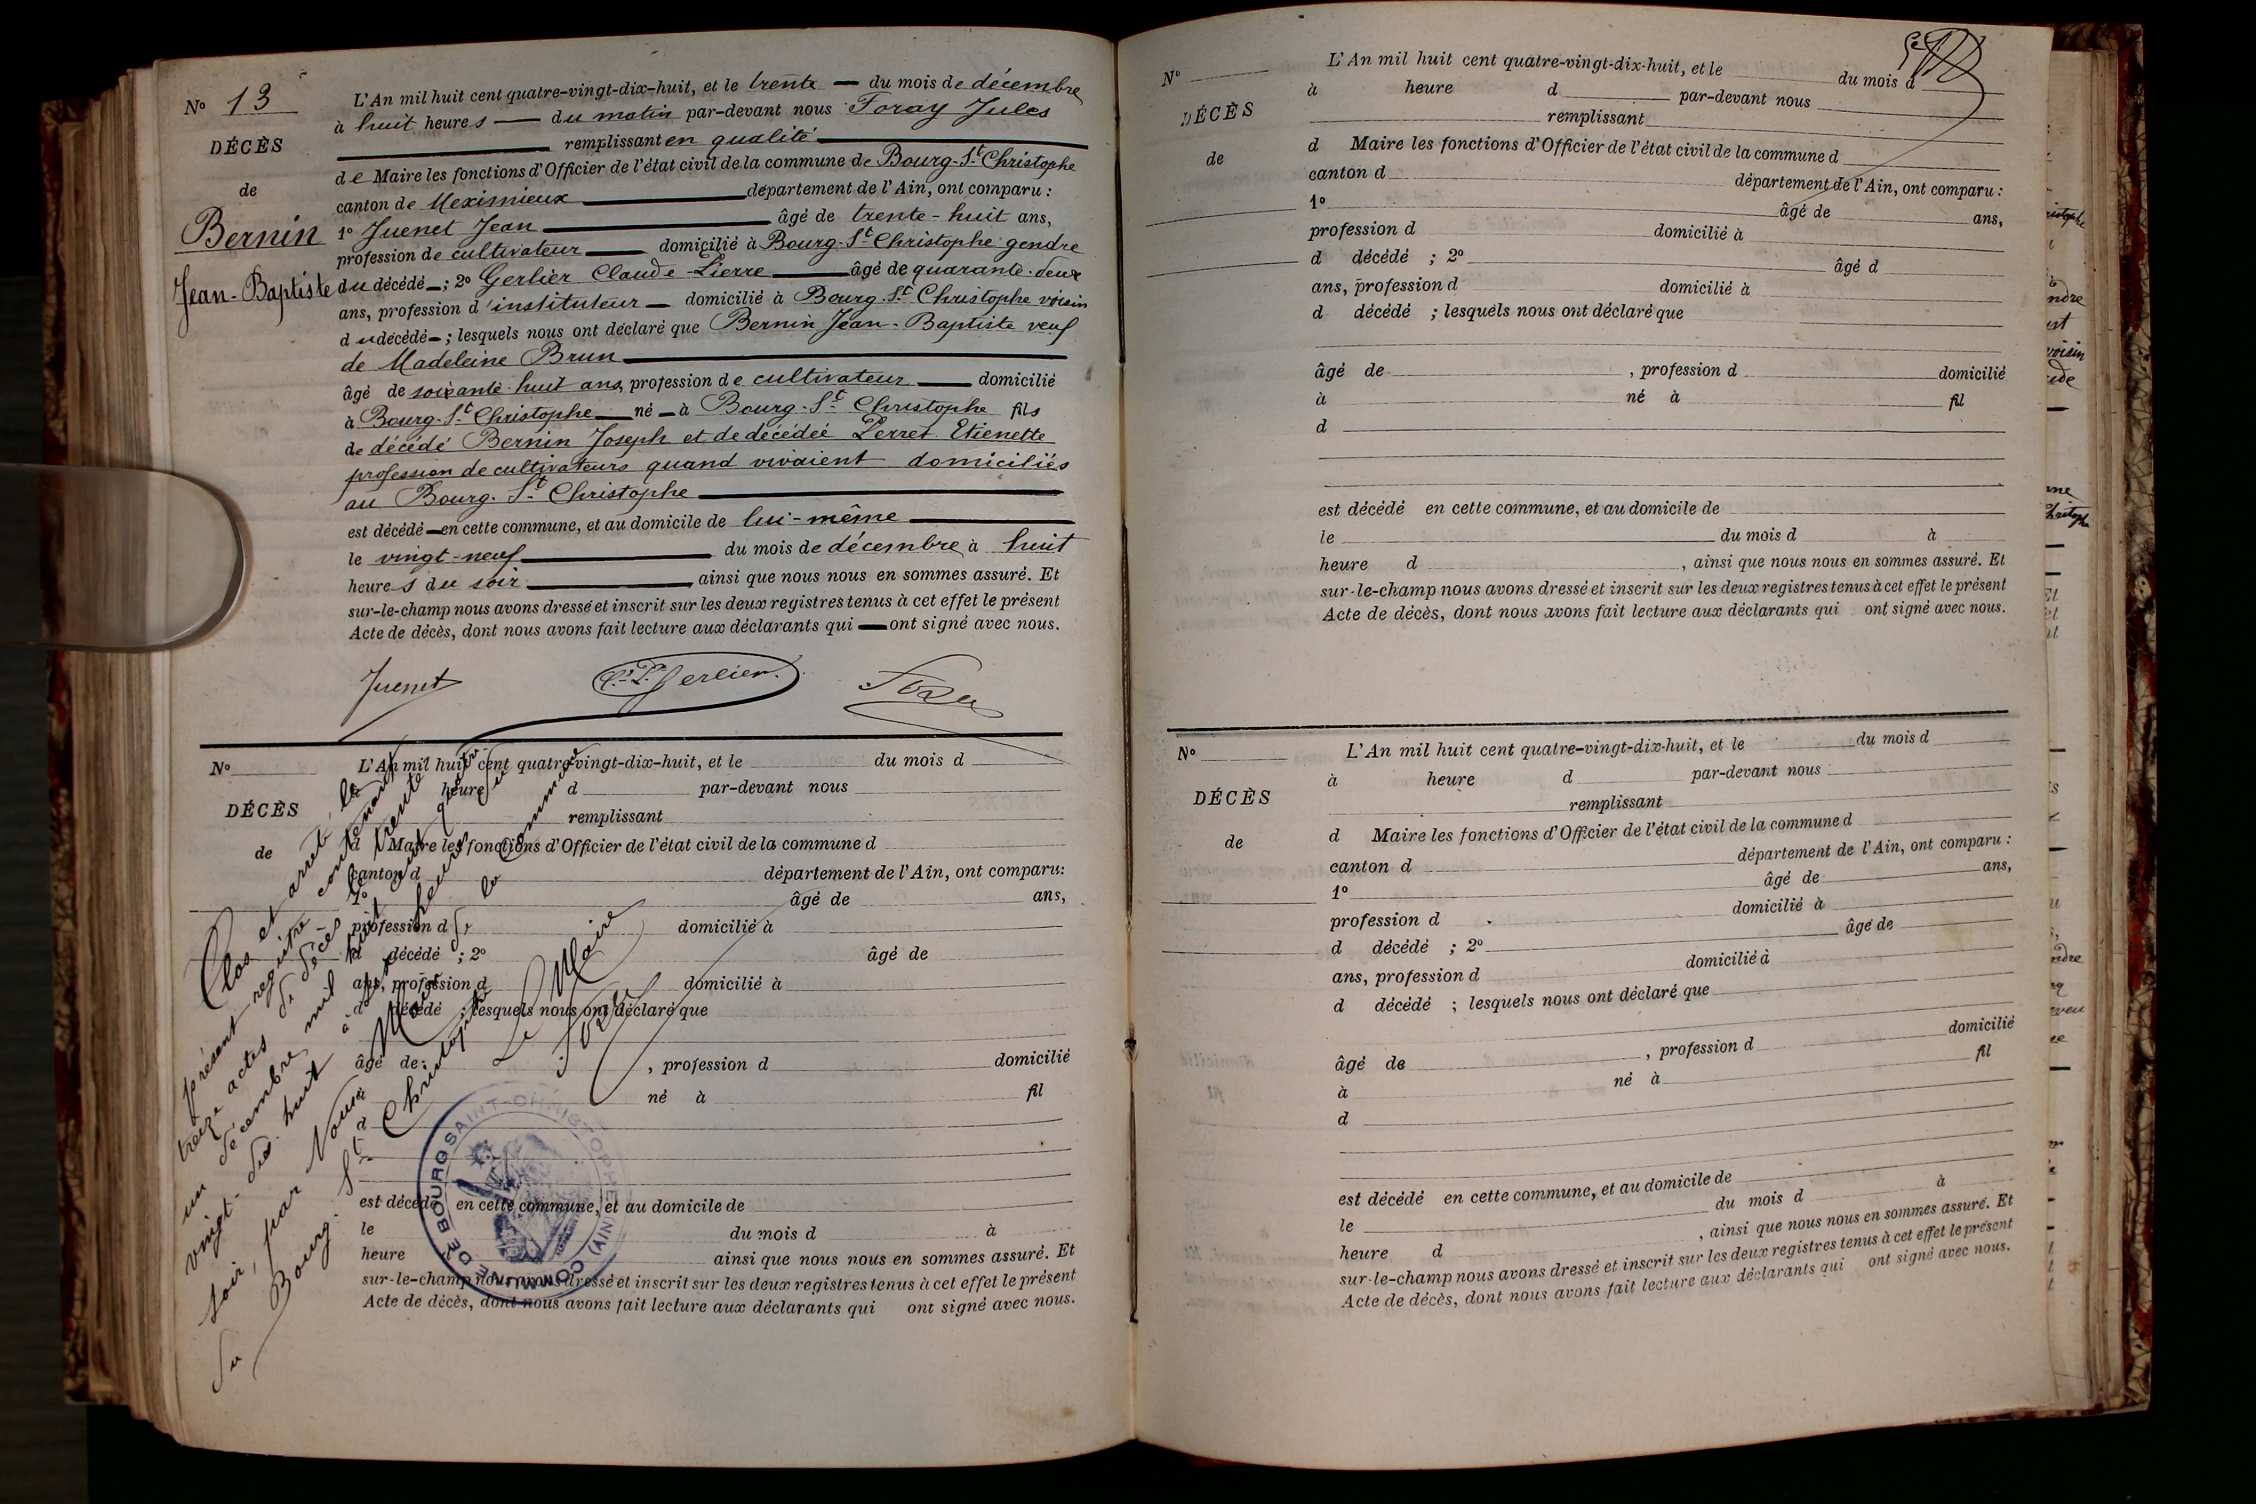 Nº 13
DÉCÈS
de
Bernin
Jean-Baptiste
L'An mil huit cent quatre-vingt-dix-huit, et le trente du mois de décembre
à huit heures du matin par-devant nous Foray Jules
remplissant en qualité
de Maire les fonctions d'Officier de l'état civil de la commune de Bourg-St Christophe
canton de Meximieux département de l'Ain, ont comparu :
1º Juenet Jean âgé de trente-huit ans,
profession de cultivateur domicilié à Bourg-St Christophe gendre
du décédé ; 2º Gerlier Claude-Pierre âgé de quarante-deux
ans, profession d'instituteur domicilié à Bourg-St Christophe voisin
du décédé ; lesquels nous ont déclaré que Bernin Jean-Baptiste veuf
de Madeleine Brun
âgé de soixante huit ans, profession de cultivateur domicilié
à Bourg-St Christophe né à Bourg-St Christophe fils
de décédé Bernin Joseph et de décédée Perret Etienette
profession de cultivateurs quand vivaient domiciliés
au Bourg-St Christophe
est décédé en cette commune, et au domicile de lui-même
le vingt-neuf du mois de décembre à huit
heures du soir ainsi que nous nous en sommes assuré. Et
sur-le-champ nous avons dressé et inscrit sur les deux registres tenus à cet effet le présent
Acte de décès, dont nous avons fait lecture aux déclarants qui ont signé avec nous.
Juenet C.P. Gerlier Foray
Nº
DÉCÈS
de
L'An mil huit cent quatre-vingt-dix-huit, et le du mois d
heure d par-devant nous
remplissant
d Maire les fonctions d'Officier de l'état civil de la commune d
canton d département de l'Ain, ont comparu:
1º âgé de ans,
profession d domicilié à
d décédé ; 2º âgé de
ans, profession d domicilié à
d décédé ; lesquels nous ont déclaré que
âgé de , profession d domicilié
à né à fil
d
est décédé en cette commune, et au domicile de
le du mois d à
heure ainsi que nous nous en sommes assuré. Et
sur-le-champ nous avons dressé et inscrit sur les deux registres tenus à cet effet le présent
Acte de décès, dont nous avons fait lecture aux déclarants qui ont signé avec nous.
Clos et arrêté le
présent registre contenant
treize actes de décès le trente
un décembre mil huit cent quatre
vingt-dix-huit à heures du
soir, par Nous Maire de la Commune
du Bourg-St Christophe
Le Maire
Foray
COMMUNE DE BOURG SAINT-CHRISTOPHE (AIN)
Nº
DÉCÈS
de
L'An mil huit cent quatre-vingt-dix-huit, et le du mois d
à heure d par-devant nous
remplissant
d Maire les fonctions d'Officier de l'état civil de la commune d
canton d département de l'Ain, ont comparu :
1º âgé de ans,
profession d domicilié à
d décédé ; 2º âgé d
ans, profession d domicilié à
d décédé ; lesquels nous ont déclaré que
âgé de , profession d domicilié
à né à fil
d
est décédé en cette commune, et au domicile de
le du mois d à
heure d , ainsi que nous nous en sommes assuré. Et
sur-le-champ nous avons dressé et inscrit sur les deux registres tenus à cet effet le présent
Acte de décès, dont nous avons fait lecture aux déclarants qui ont signé avec nous.
Nº
DÉCÈS
de
L'An mil huit cent quatre-vingt-dix-huit, et le du mois d
à heure d par-devant nous
remplissant
d Maire les fonctions d'Officier de l'état civil de la commune d
canton d département de l'Ain, ont comparu :
1º âgé de ans,
profession d domicilié à
d décédé ; 2º âgé de
ans, profession d domicilié à
d décédé ; lesquels nous ont déclaré que
âgé de , profession d domicilié
à né à fil
d
est décédé en cette commune, et au domicile de
le du mois d à
heure d , ainsi que nous nous en sommes assuré. Et
sur-le-champ nous avons dressé et inscrit sur les deux registres tenus à cet effet le présent
Acte de décès, dont nous avons fait lecture aux déclarants qui ont signé avec nous.